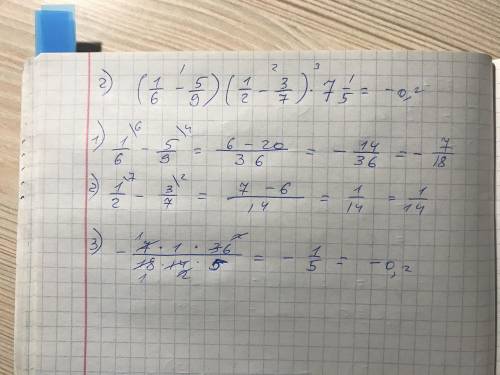 2) (1/6 - 5/9) (1/2 - 3/7) · 7 1/5 = -0,2
1) 1/6 \6 - 5/9 \4 = (6 - 20)/36 = - 14/36 = - 7/18
2) 1/2 \7 - 3/7 \2 = (7 - 6)/14 = 1/14 = 1/14
3) - (7 · 1 · 36)/(18 · 14 · 5) = - 1/5 = -0,2